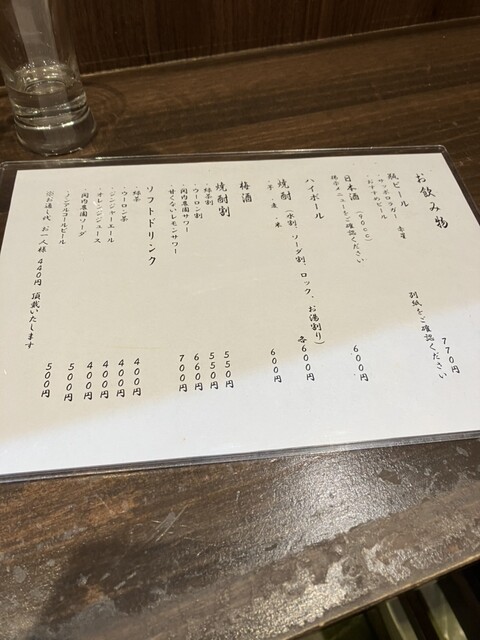 お飲み物
瓶ビール
・サッポロラガー 赤星 770円
・おすすめビール 別紙をご確認ください
日本酒 (90cc) 600円
掲示メニューをご確認ください
ハイボール
焼酎 (水割、ソーダ割、ロック、お湯割り) 各600円
・芋・麦・米 600円
梅酒
焼酎割
・緑茶割 550円
・ウーロン割 550円
・関内農園サワー 660円
甘くないレモンサワー 700円
ソフトドリンク
・緑茶 400円
・ウーロン茶 400円
・ジンジャエール 400円
・オレンジジュース 400円
・関内農園ソーダ 500円
・ノンアルコールビール 500円
※お通し代 お一人様 440円 頂戴いたします